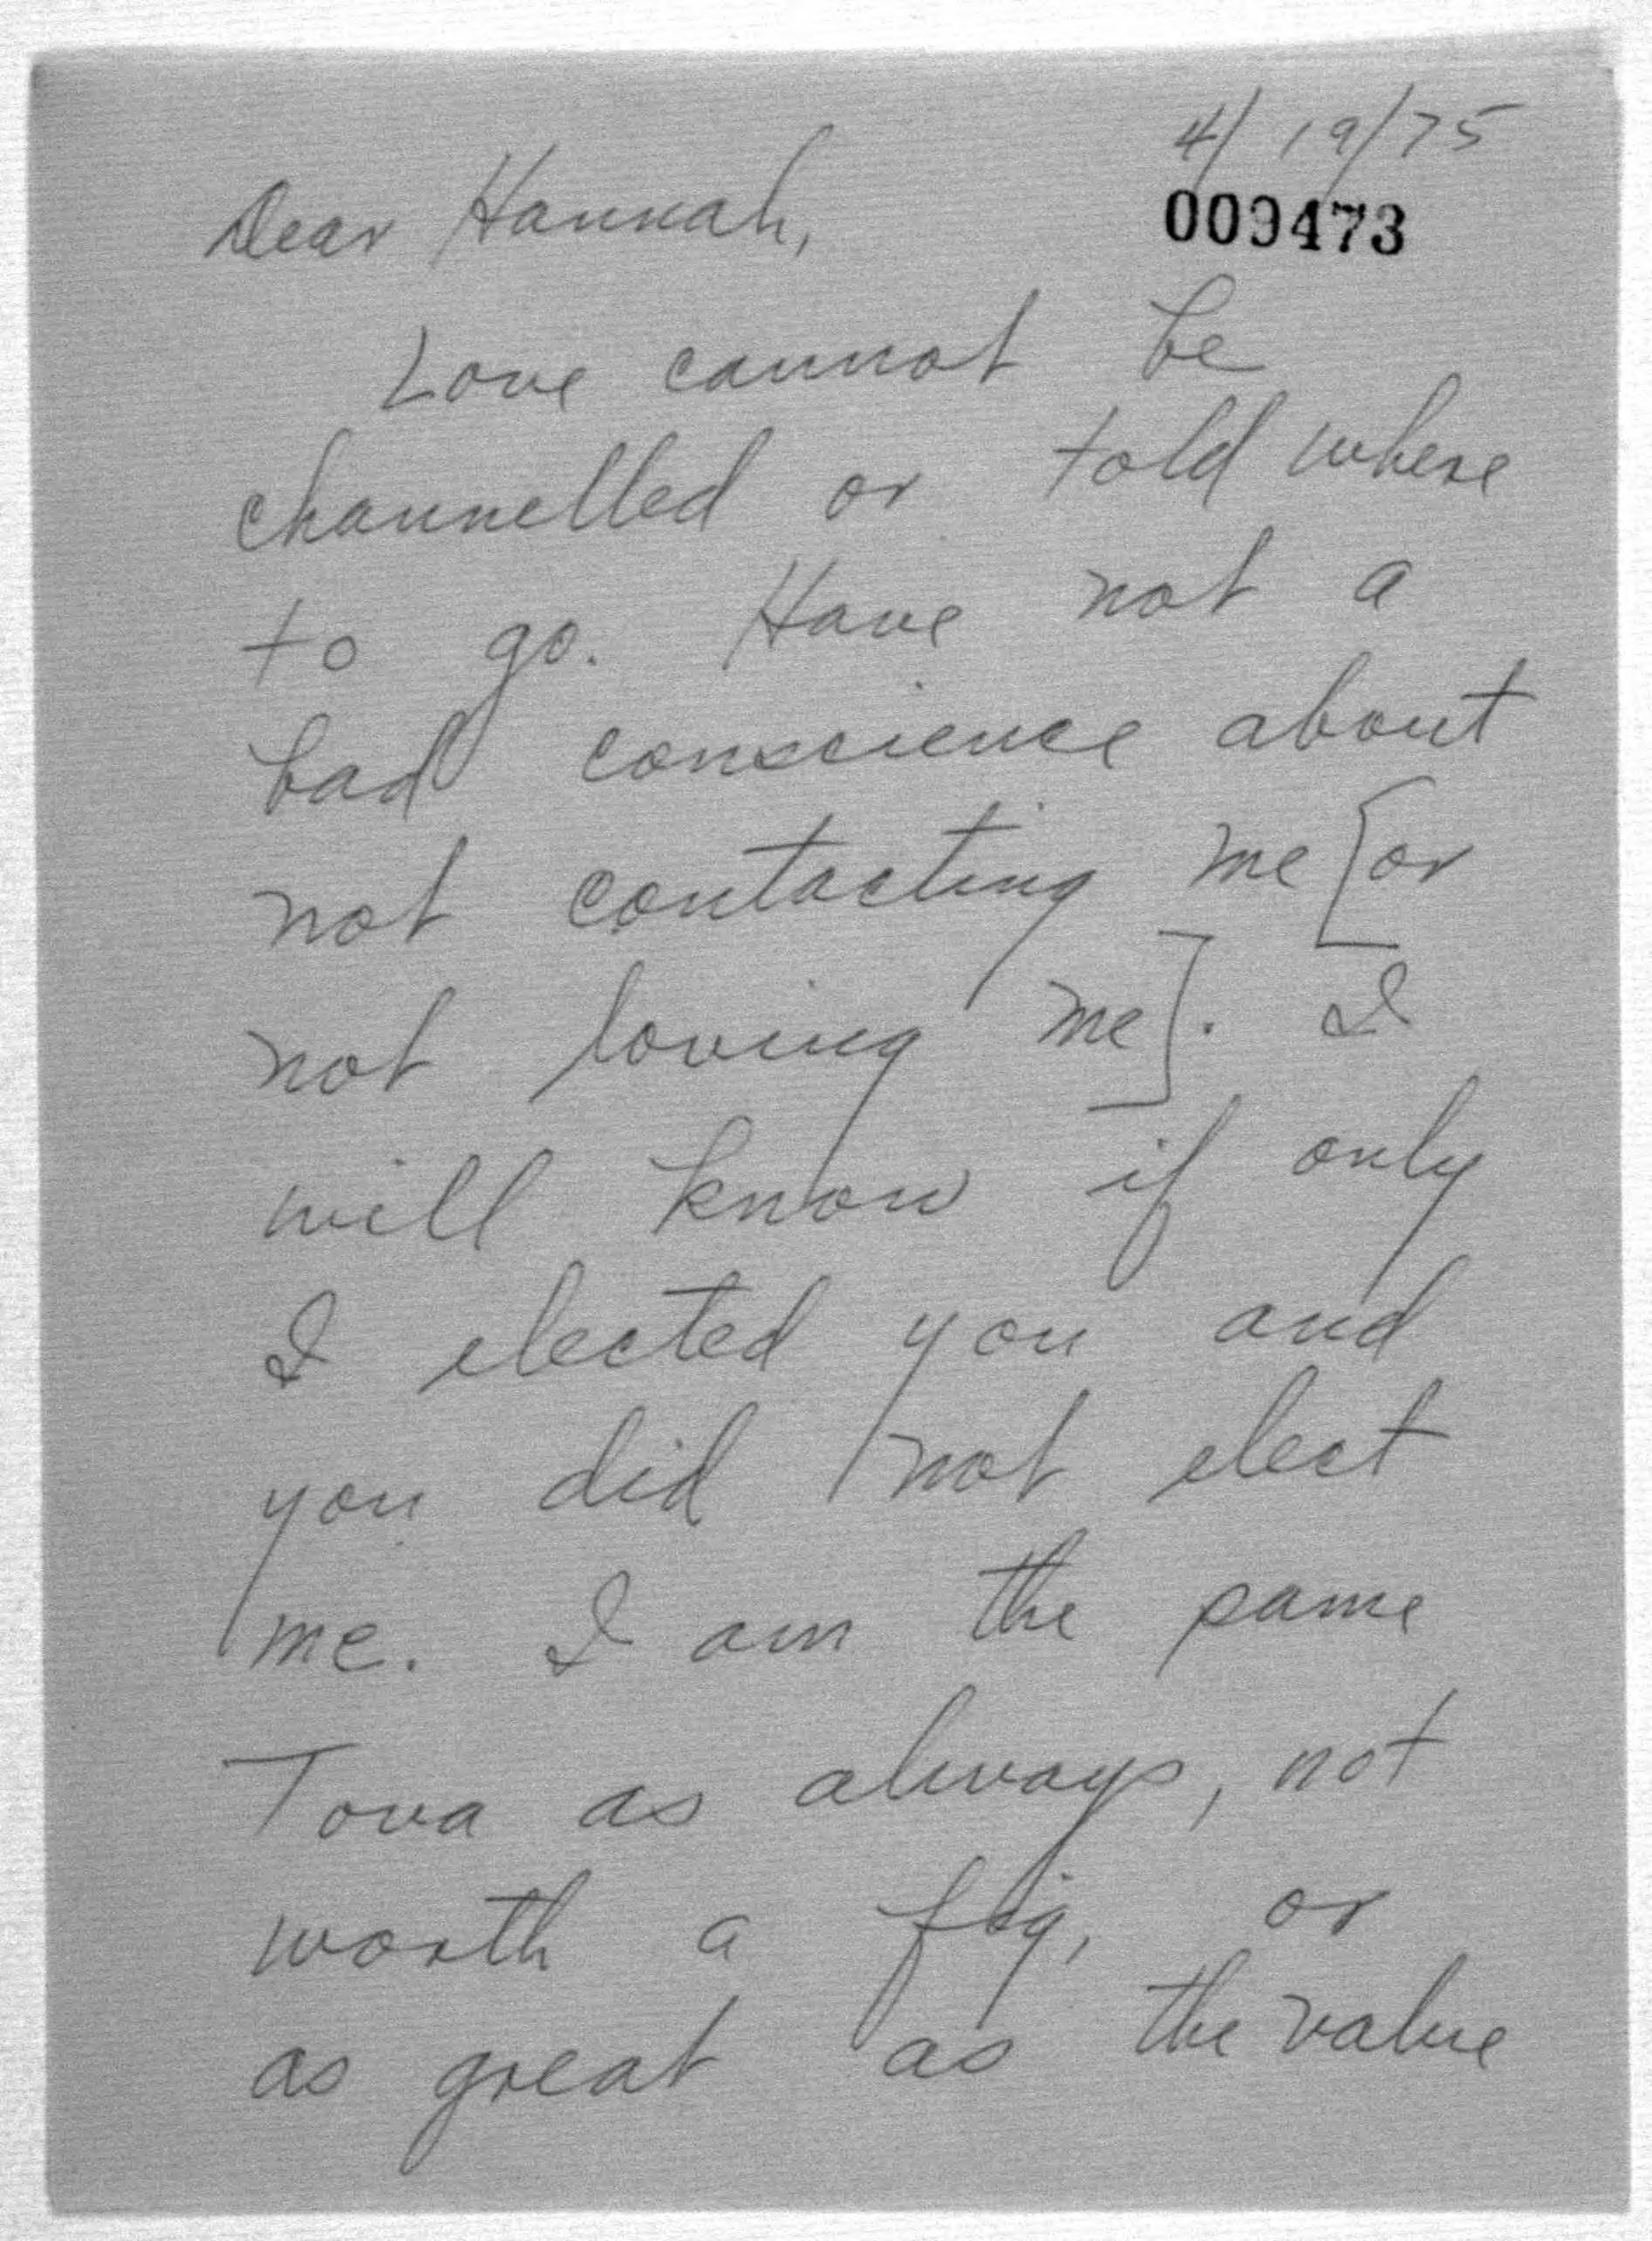 4/19/75
009473
Dear Hannah,
Love cannot be
channelled or told where
to go. Have not a
bad conscience about
not contacting me [or
not loving me]. I
will know if only
I elected you and
you did not elect
me. I am the same
Tova as always, not
worth a fig, or
as great as the value